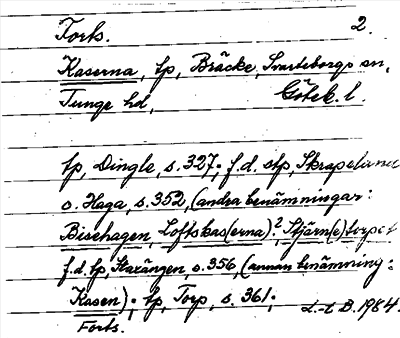 Forts. 2.
Kaserna, tp, Bräcke, Svarteborgs sn,
Tunge hd, Göteb. l.
tp, Dingle, s. 327; f.d. stp, Skrapeland
o. Haga, s. 352, (andra benämningar:
Bischagen, Loftskas(erna)?, Stjärn(e)torpet
f.d. tp, Starängen, s. 356, (annan benämning:
Kasen); tp, Torp, s. 361;
Forts. L-E B. 1984.